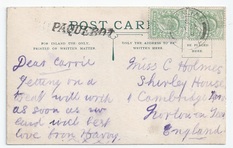 POST CARD
PAQUEBOT
FOR INLAND USE ONLY.
PRINTED OR WRITTEN MATTER.
THE ADDRESS TO BE
WRITTEN HERE.
Dear Carrie
Getting on a
treat will write
as soon as we
land with best
love from Harry.
Miss C Holmes
Shirley House
Cambridge
England